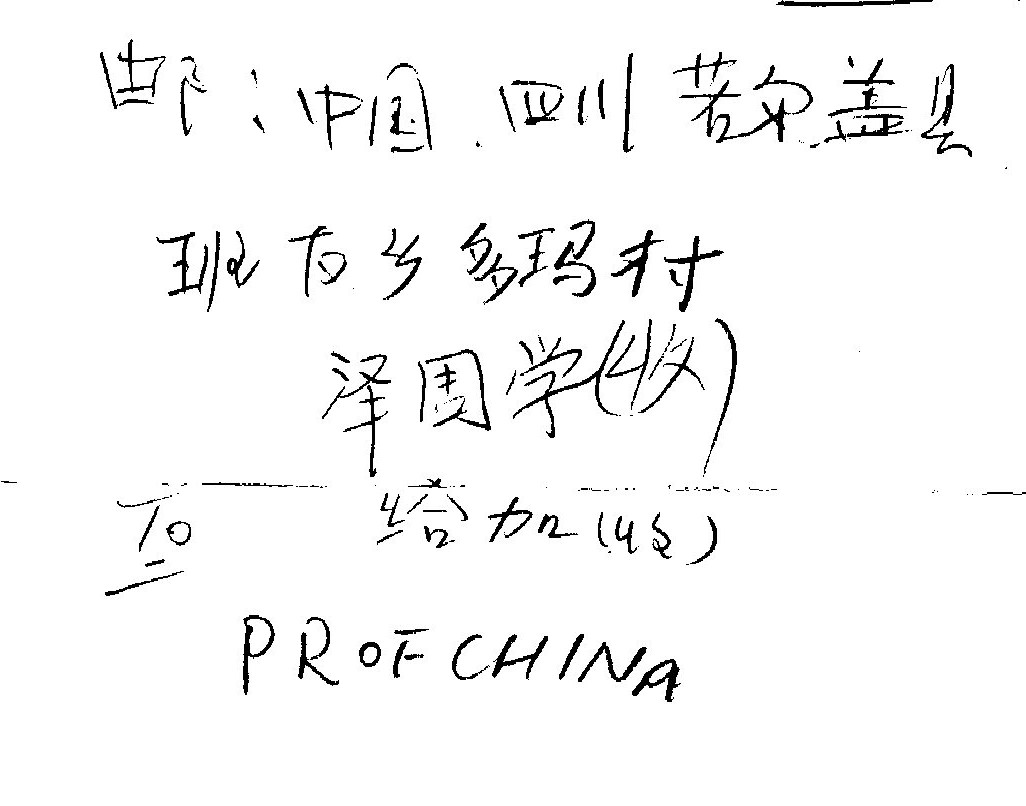 邮:中国.四川若尔盖县
班右乡多玛村
泽周学(收)
TO 给加(收)
PROFCHINA